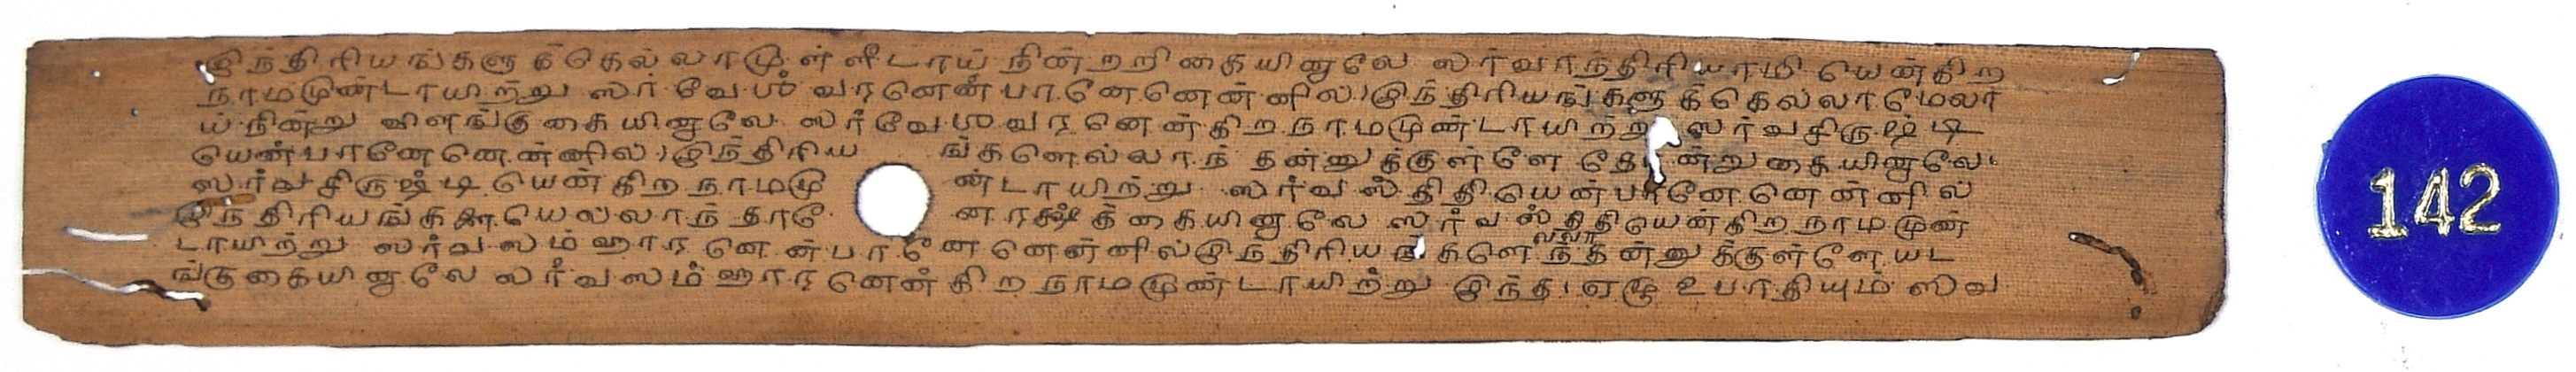 இந்திரியங்களுக்கெல்லாமுள்ளீடாய் நின்றறிகையினாலே ஸர்வாந்திரியாமி யென்கிற
நாமமுண்டாயிற்று ஸர்வேஶ்வரனென்பானேனென்னில் இந்திரியங்களுக்கெல்லாமேலா
ய் நின்று விளங்குகையினாலே ஸர்வேஶ்வரனென்கிற நாமமுண்டாயிற்று ஸர்வசிருஷ்டி
யென்பானேனென்னில் இந்திரியங்களெல்லாந் தன்னுக்குள்ளே தோன்றுகையினாலே
ஸர்வசிருஷ்டி யென்கிற நாமமுண்டாயிற்று ஸர்வஸ்திதியென்பானேனென்னில்
இந்திரியங்களை யெல்லாந் தானே ரக்ஷிக்கையினாலே ஸர்வஸ்திதியென்கிற நாமமுண்
டாயிற்று ஸர்வஸம்ஹாரனென்பானேனென்னில் இந்திரியங்களெல்லாந்தன்னுக்குள்ளேயட
ங்குகையினாலே ஸர்வஸம்ஹாரனென்கிற நாமமுண்டாயிற்று இந்த ஏழு உபாதியும் ஸிவ
142